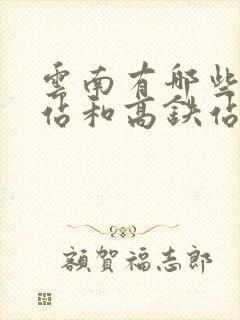 雲南有哪些
佔和高鉄佔
額賀福志郎